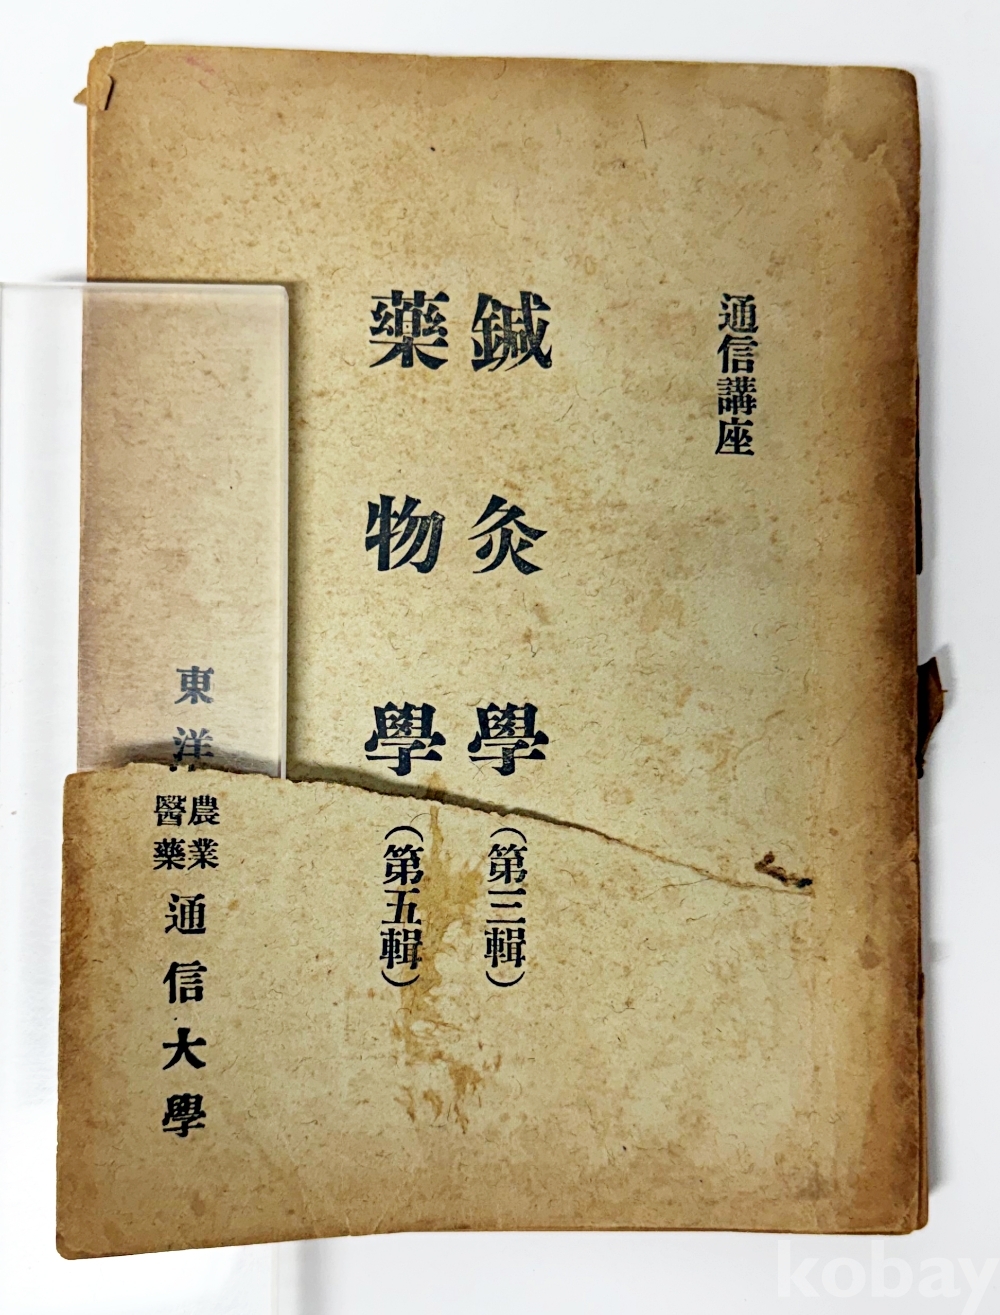 通信講座
鍼灸學(第三輯)
藥物學(第五輯)
東洋農業醫藥通信大學
kobay